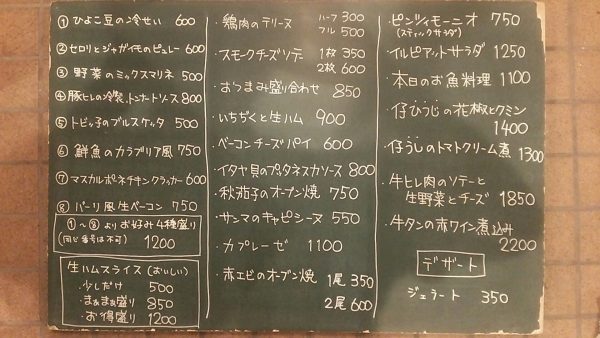 ① ひよこ豆の冷せい 600
② セロリとジャガイモのピュレー 600
③ 野菜のミックスマリネ 500
④ 豚ヒレの冷製、トンナートソース 800
⑤ トピッ子のブルスケッタ 500
⑥ 鮮魚のカラブリア風 750
⑦ マスカルポーネチキンクラッカー 600
⑧ バーリ風生ベーコン 750
①~⑧よりお好み4種盛り
(同じ番号は不可) 1200
生ハムスライス (おいしい)
・少しだけ 500
・まぁまぁ盛り 850
・お得盛り 1200
・鶏肉のテリーヌ ハーフ 300
フル 500
・スモークチーズソテー 1枚 350
2枚 600
・おつまみ盛り合わせ 850
・いちぢくと生ハム 900
・ベーコンチーズパイ 600
・イタヤ貝のプッタネスカソース 800
・秋茄子のオーブン焼 750
・サンマのキャピシーヌ 550
・カプレーゼ 1100
・赤エビのオーブン焼 1尾 350
2尾 600
・ピンツィモーニオ 750
(スティックサラダ)
・イルピアットサラダ 1250
・本日のお魚料理 1100
・仔ひつじの花椒とクミン
1400
・仔うしのトマトクリーム煮 1300
・牛ヒレ肉のソテーと
生野菜とチーズ 1850
・牛タンの赤ワイン煮込み
2200
デザート
ジェラート 350